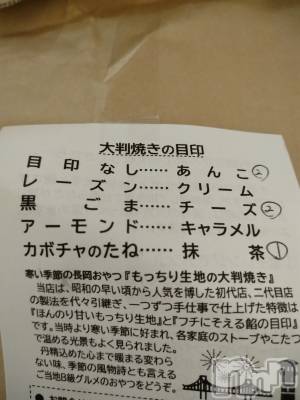 大判焼きの目印
目印なし……あんこ②
レーズン……クリーム
黒ごま……チーズ②
アーモンド……キャラメル
カボチャのたね……抹茶①
寒い季節の長岡おやつ『もっちり生地の大判焼き』
当店は、昭和の早い頃から人気を博した初代店、二代目店
の製法を代々引継ぎ、一つずつ手仕事で仕上げた特徴は
『ほんのり甘いもっちり生地』と『フチにそえる餡の目印』
です。当時より寒い季節に好まれ、各家庭のストーブやこたつ
で温める光景もよく見られました。
丹精込めた心まで暖まる変わら
ない味、季節の風物詩とも言える
ご当地B級グルメのおやつをどうぞ。